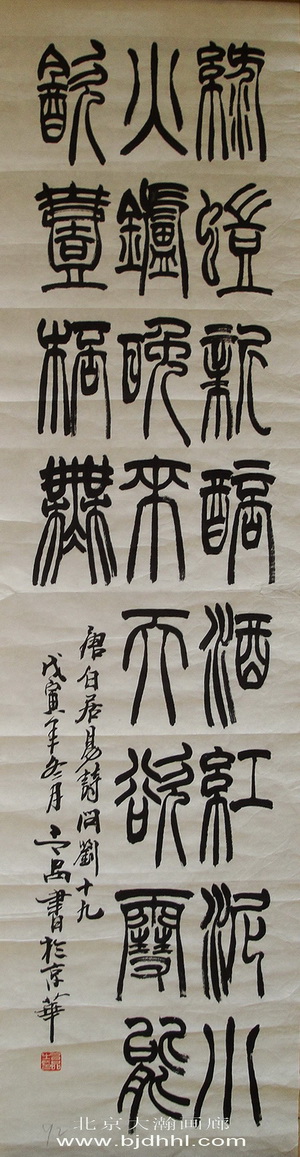 綠螘新醅酒紅泥小
火鑪晚來天欲雪能
飲壹桮無
唐白居易詩問劉十九
戊寅年冬月昌書於京華
北京大瀚画廊
www.bjdhhl.com